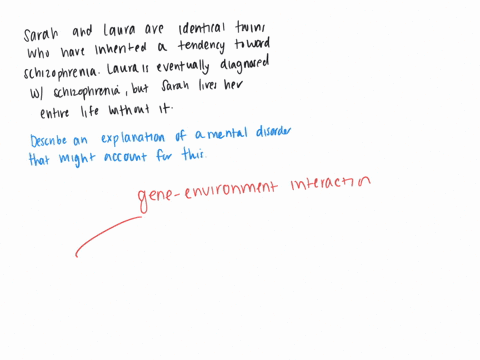 Sarah and Laura are identical twins
who have inherited a tendency toward
schizophrenia. Laura is eventually diagnosed
w/ schizophrenia, but Sarah lives her
entire life without it.
Describe an explanation of a mental disorder
that might account for this.
gene-environment interaction